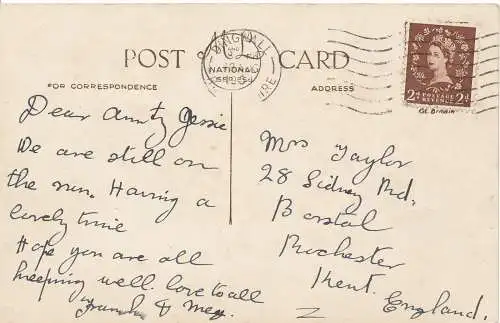 POST CARD
NATIONAL
SERIES
FOR CORRESPONDENCE
ADDRESS
GT. BRITAIN
POSTAGE
REVENUE
2d 2d
Dear Aunty Jessie
We are still on
the run. Having a
lovely time
Hope you are all
keeping well. love to all
Frank & Meg.
Mrs Taylor
28 Sidney Rd,
Borstal
Rochester
Kent.
England.